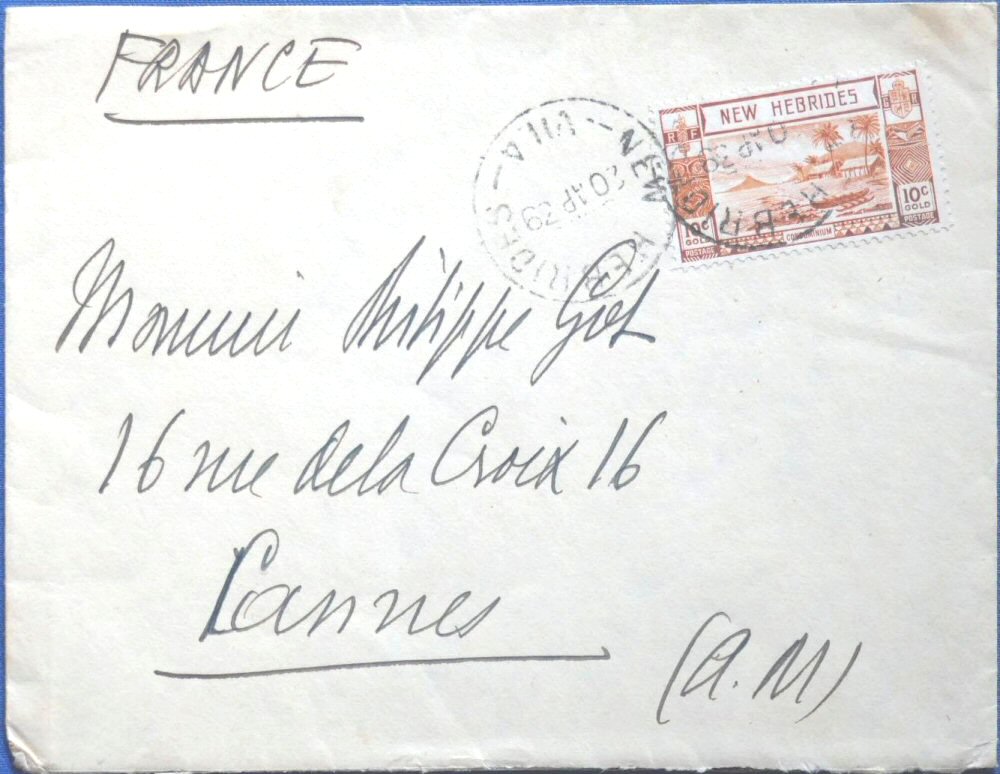 FRANCE
NEW HEBRIDES
R F
G R
10c
GOLD
POSTAGE
CONDOMINIUM
10c
GOLD
POSTAGE
VILA — NEW HEBRIDES —
20 AP 39
AP 39
HEBRID
Monsieur Philippe
16 rue de la Croix 16
Cannes
(A.M)